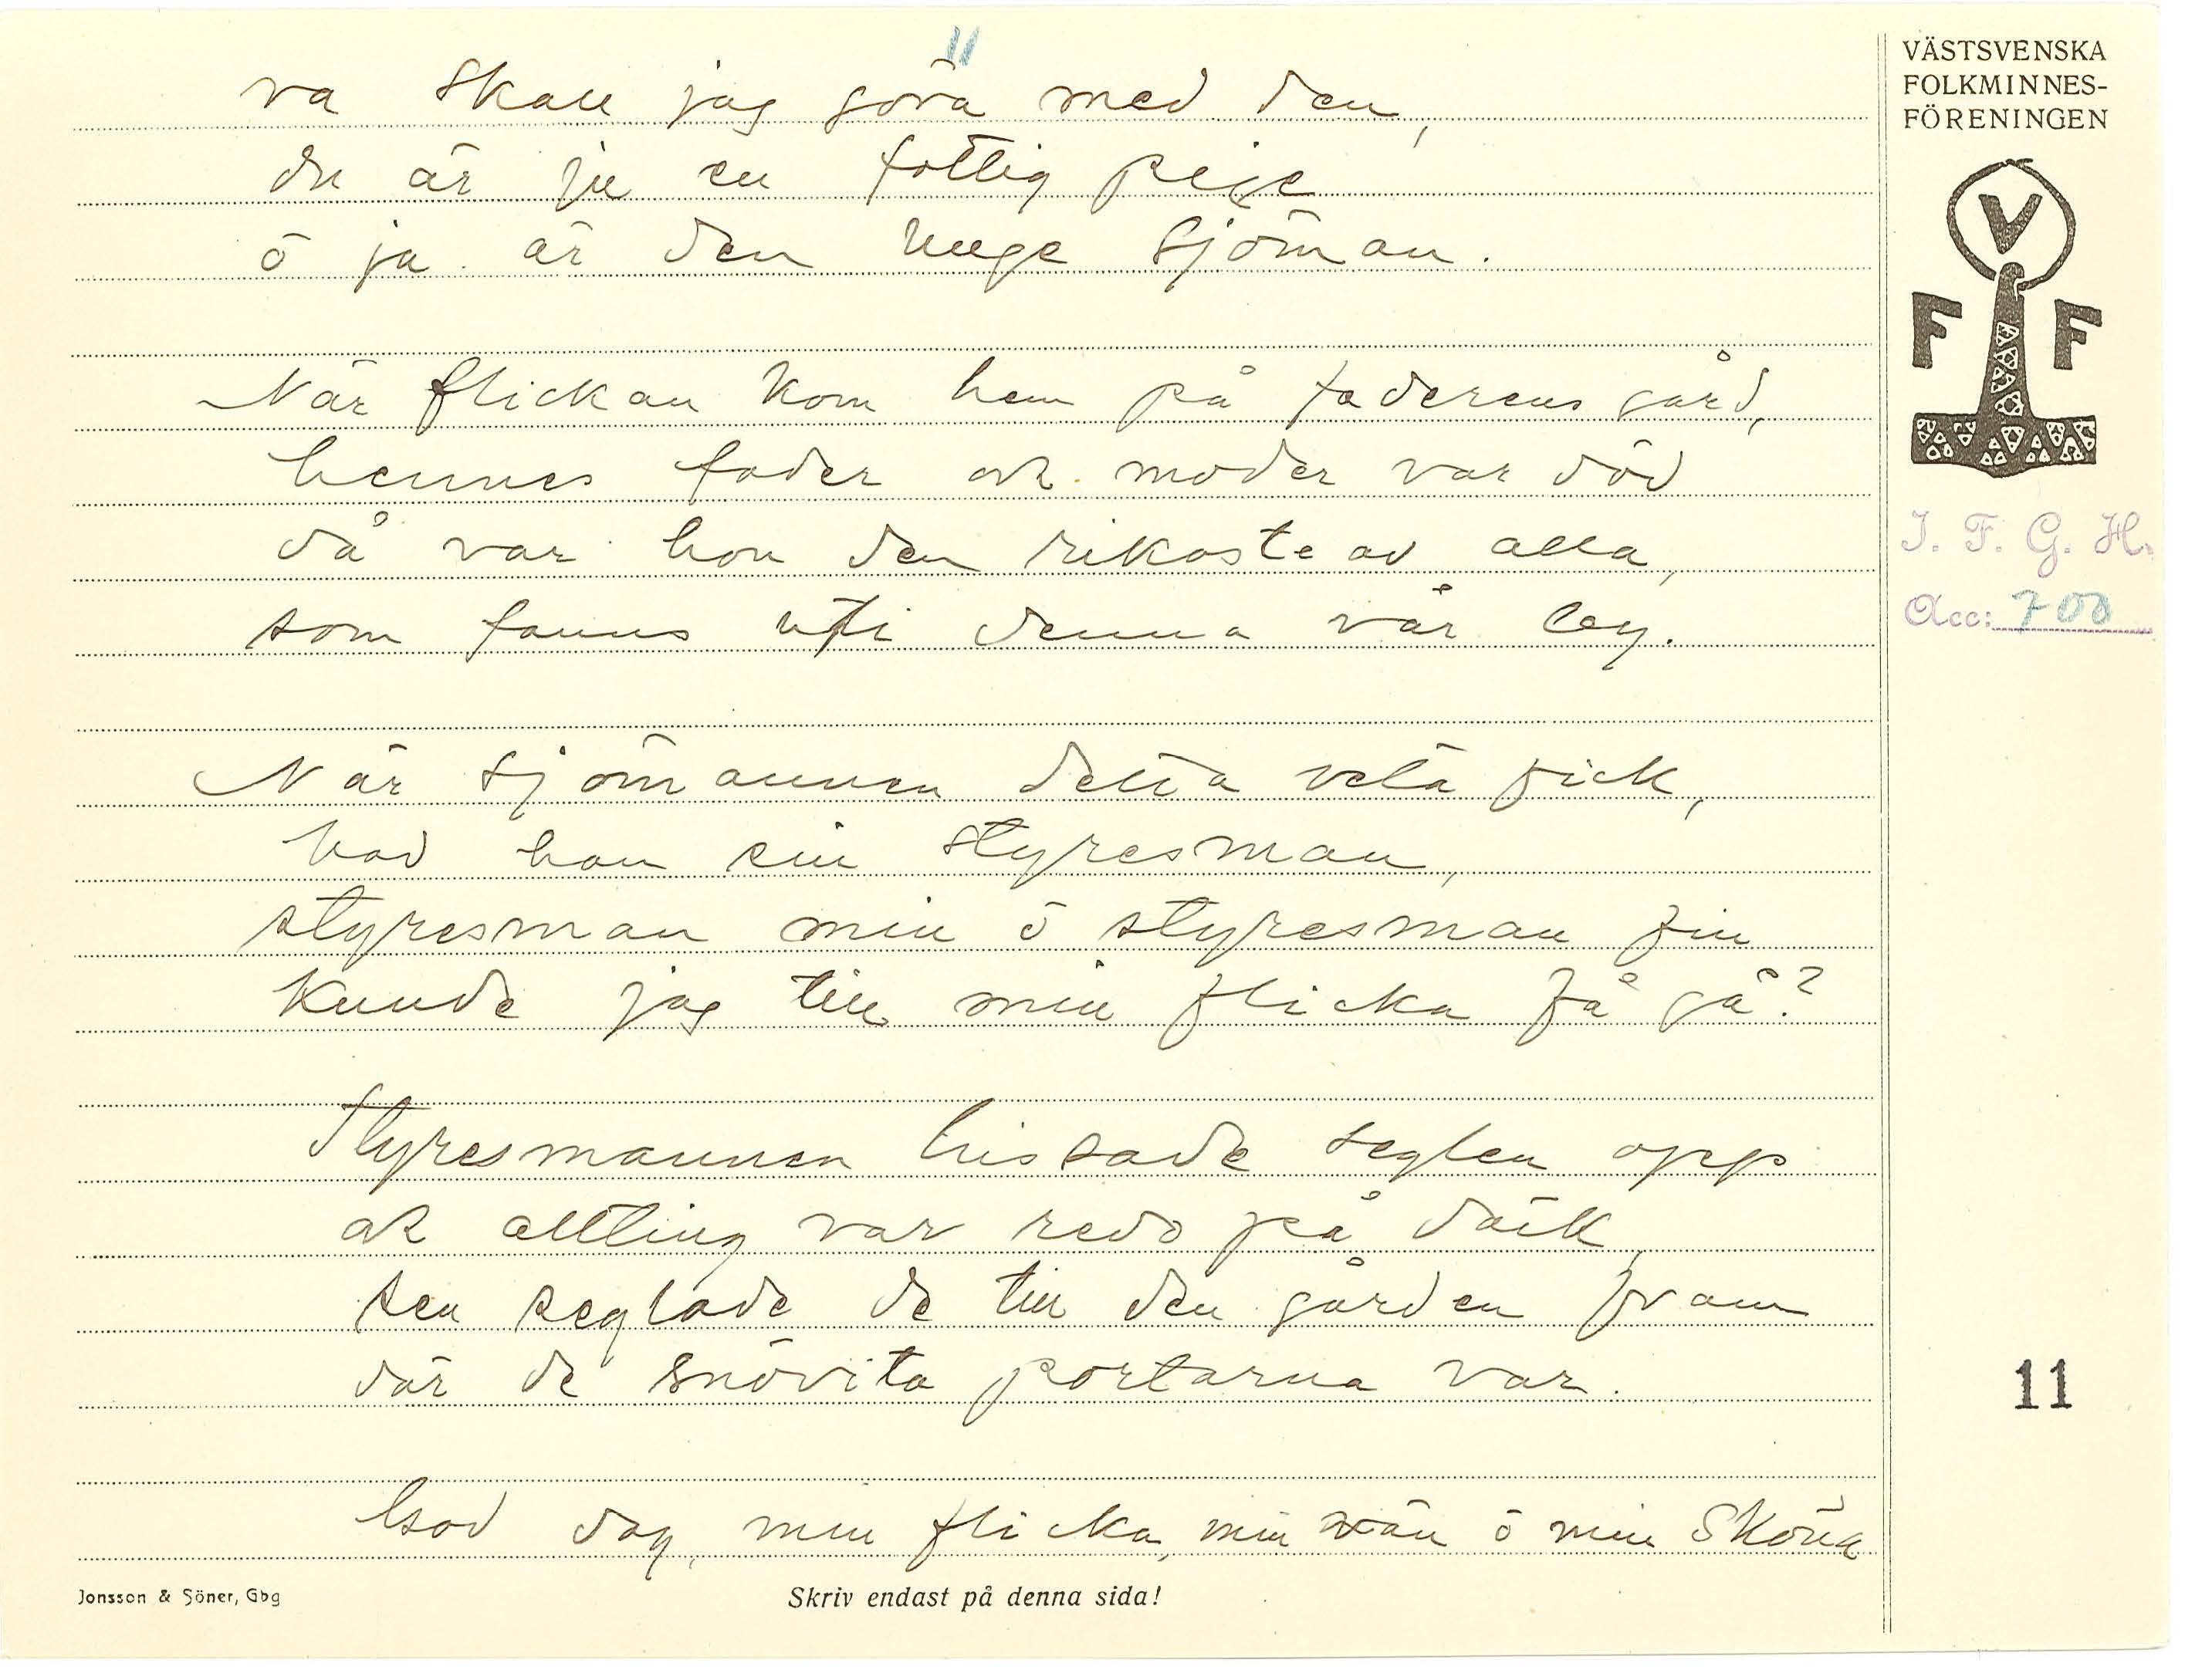 11
va skall jag göra med den,
du är ju en fattig peje
ö ja är den unge sjöman.
När flickan kom hem på faderens gård,
hennes fader ock moder var död
då var hon den rikaste av alla,
som fanns uti denna vår by.
När sjömannen detta veta fick,
bad han sin styresman,
styresman min ö styresman fin
kunde jag till min flicka få gå?
Styresmannen hissade seglen opp
ock allting var redo på däck,
sen seglade de till den gården fram
där de snövita portarna var.
God dag, min flicka, min vän ö min sköna
Jonsson & Söner, Gbg
Skriv endast på denna sida!
VÄSTSVENSKA
FOLKMINNES-
FÖRENINGEN
V
F F
I. F. G. H.
Acc: 700
11